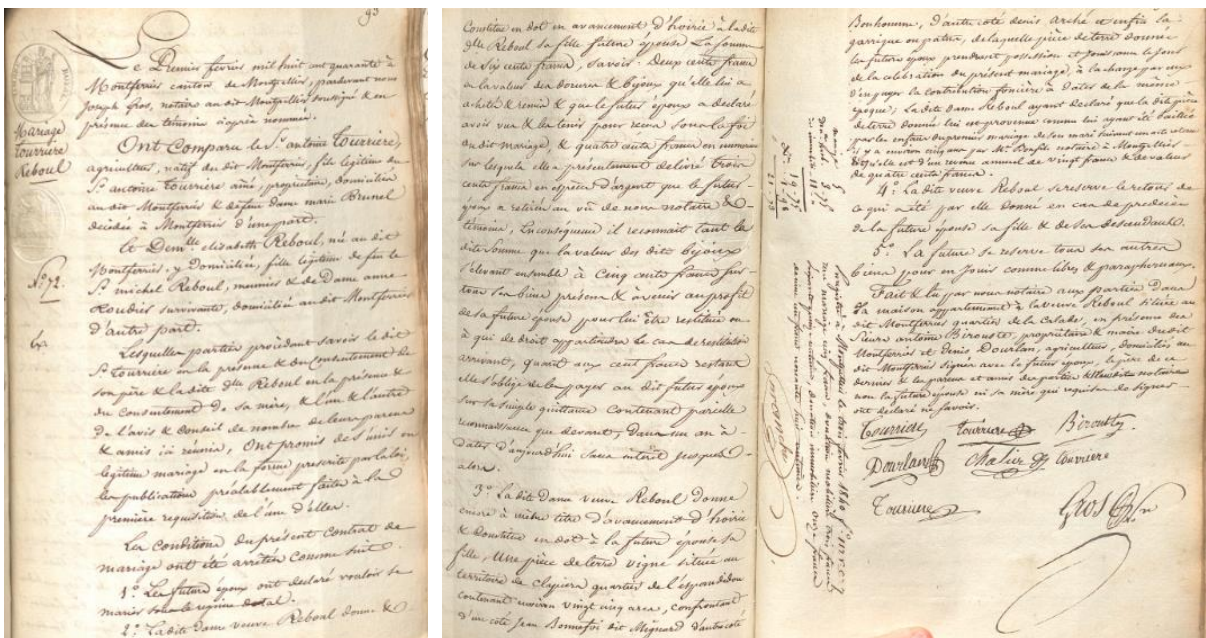 93
Mariage
Tourrière
Reboul
N° 72.
Le Premier février mil huit cent quarante à
Montferrier canton de Montpellier, pardevant nous
Joseph Gros, notaire audit Montpellier soussigné & en
présence des témoins ciaprès nommés.
Ont Comparu le Sr. antoine Tourrière,
agriculteur, natif dudit Montferrier, fils légitime du
Sr. antoine Tourriere ainé, propriétaire, domicilién
audit Montferrier & défunte dame marie Brunel
décédée à Montferrier d'une part.
Et Demlle. elizabeth Reboul, née audit
Montferrier y Domiciliée, fille légitime de feu le
Sr. michel Reboul, meunier & de Dame anne
Roudier survivante, domiciliée audit Montferrier
d'autre part.
Lesquelles parties procédant savoir le dit
Sr. Tourriere en la présence & du Consentement de
son père & ladite Dlle. Reboul en la présence &
du Consentement de sa mère, & l'un & l'autre
De l'avis & Conseil de nombre de leurs parens
& amis ici réunis, Ont promis de s'unir en
légitime mariage en la forme prescrite par la loi,
les publications préalablement faites à la
première requisition de l'un d'elles.
Les Conditions du présent contrat de
mariage ont été arrêtées Comme suit.
1° Les futurs époux ont déclaré vouloir se
marier sous le régime dotal.
2° Ladite Dame veuve Reboul donne &
Constitue en dot en avancement d'hoirie à ladite
Dlle. Reboul sa fille future épouse La somme
de Six cents francs, Savoir: Deux cents francs
en la valeur des dorures & bijoux qu'elle lui a
achetés & remis & que le futur époux a déclaré
avoir vus & les tenir pour reçus sous la foi
du dit mariage, & quatre cents francs en numéraire
sur lesquels elle a présentement délivré trois
cents francs en espèces d'argent que le futur
époux a retirés au vû de nous notaire &
témoins, En conséquence il reconnait tant la
dite Somme que la valeur des dits bijoux
s'élevant ensemble à Cinq cents francs sur
tous ses biens présens & à venir au profit
de sa future épouse pour lui être restituée ou
à qui de droit appartiendra le cas de restitution
arrivant, quant aux cent francs restans
elle s'oblige de les payer au dit futur époux
sur sa simple quittance Contenant pareille
reconnaissance que devant, Dans un an à
dater d'aujourd'hui Sans intérêt jusques
alors.
3° Ladite Dame veuve Reboul donne
encore à même titre d'avancement d'hoirie
& Constitue en dot à la future épouse sa
fille, Une pièce de terre vigne située au
territoire de Clapiers quartier de l'espandidou
contenant environ vingt cinq ares, confrontant
d'un côté Jean Bonnefoi dit Mignard d'autre côté
Bonhomme, D'autre côté denis Arché et enfin la
garrigue ou patus, de laquelle pièce de terre donnée
les futurs époux prendront possession et jouissance le jour
de la célébration du présent mariage, à la charge par eux
d'en payer la contribution foncière à Dater de la même
époque; La dite dame Reboul ayant déclaré que la dite pièce
de terre donnée lui est provenue comme lui ayant été baillée
par les enfans du premier mariage de son mari suivant acte retenu
il y a environ cinq ans par Me. Bonfils notaire à Montpellier
& qu'elle est d'un revenu annuel de vingt francs & de valeur
de quatre cents francs.
4° La dite veuve Reboul se réserve le retour de
ce qui a été par elle donné en cas de prédécès
de la future épouse sa fille & de ses descendants.
5° La future se réserve tous ses autres
biens pour en jouir comme libres & paraphernaux.
Fait & lu par nous notaire aux parties Dans
la maison appartenant à la veuve Reboul située au
dit Montferrier quartier de la Calade, en présence des
Sieurs antoine Birouste, propriétaire & maire dudit
Montferrier et Denis Dourlan, agriculteur, domiciliés au
dit Montferrier Signés avec le futur époux, le père de ce
dernier & les parens et amis des parties & nousdit notaire
non la future épouse ni sa mère, qui requises de signer
ont déclaré ne savoir.
Tourrière
Tourriere
Birouste
Dourlan
Chalier
Tourriere
Tourriere
Gros